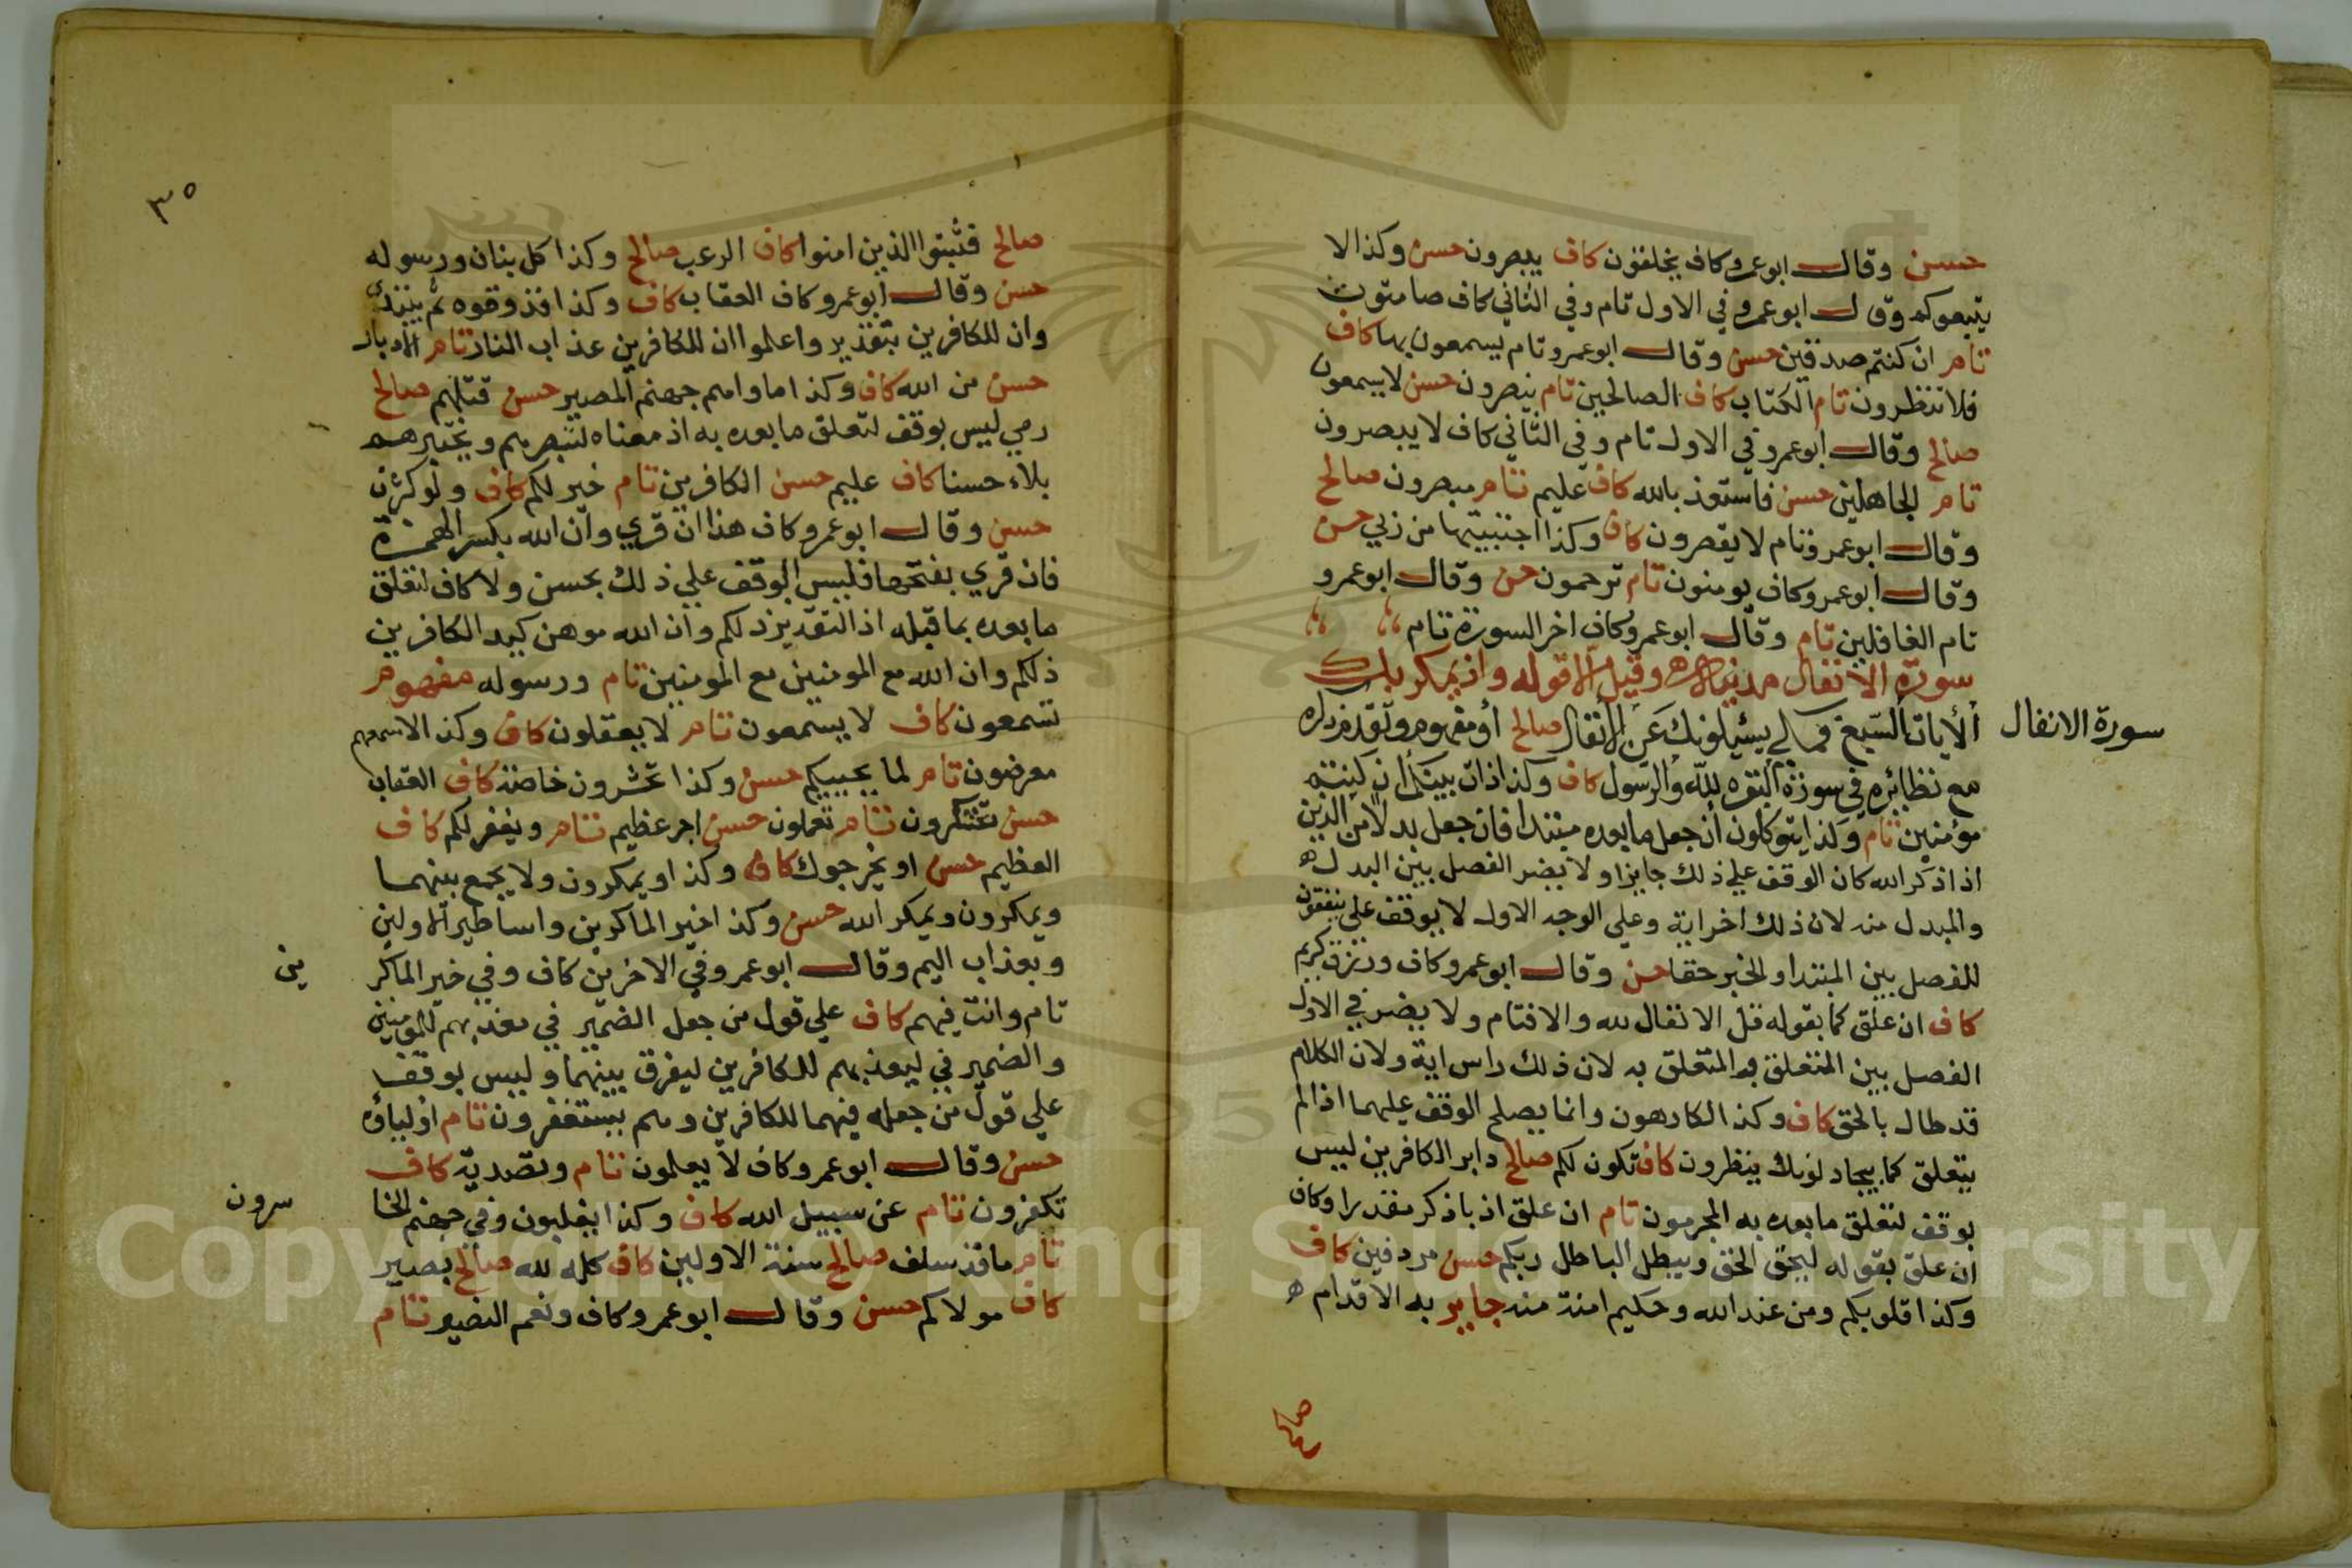 حسن وقال ابو عمرو كاف يخلقون كاف يبصرون حسن وكذا لا
يتبعوكم وقال ابو عمرو في الاول تام وفي الثاني كاف صامتون
تام ان كنتم صدقين حسن وقال ابو عمرو تام يسمعون بها كاف
فلا تنظرون تام الكتاب كاف الصالحين تام ينصرون حسن لا يسمعون
صالح وقال ابو عمرو في الاول تام وفي الثاني كاف لا يبصرون
تام الجاهلين حسن فاستعذ بالله كاف عليم تام مبصرون صالح
وقال ابو عمرو تام لا يقصرون كاف وكذا اجتبيتها من ربي حسن
وقال ابو عمرو كاف يومنون تام ترحمون حسن وقال ابو عمرو
تام الغافلين تام وقال ابو عمرو كاف اخر السورة تام
سورة الانفال مدنية وقيل الا قوله واذ يمكر بك
سورة الانفال
الأيات السبع فمكي يسئلونك عن الأنفال صالح أو مفهوم وتقدم
مع نظائره في سورة البقره لله والرسول كاف وكذا ذات بينكم ان كنتم
مؤمنين تام وكذا يتوكلون أن جعل ما بعده مبتدا فان جعل بدلا من الذين
اذا ذكر الله كان الوقف علي ذلك جايزا ولا يضر الفصل بين البدل
والمبدل منه لان ذلك اخر اية وعلي الوجه الاول لا يوقف علي ينفقون
للفصل بين المبتدا والخبر حقا حسن وقال ابو عمرو كاف ورزق كريم
كاف ان علق كما بقوله قل الانفال لله والا فتام ولا يضر في الاول
الفصل بين المتعلق والمتعلق به لان ذلك راس اية ولان الكلام
قد طال بالحق كاف وكذا الكارهون وانما يصلح الوقف عليهما اذا لم
يتعلق كما بيجادلونك ينظرون كاف تكون لكم صالح دابر الكافرين ليس
بوقف لتعلق ما بعده به المجرمون تام ان علق اذ باذكر مقدرا وكاف
ان علق بقوله ليحق الحق ويبطل الباطل ربكم حسن مردفين كاف
وكذا قلوبكم ومن عند الله وحكيم امنة منه جايز به الاقدام
صالح
٣٥
صالح فثبتوا الذين امنوا كاف الرعب صالح وكذا كل بنان ورسوله
حسن وقال ابو عمرو كاف العقاب كاف وكذا فذوقوه ثم يبتدئ
وان للكافرين بتقدير واعلموا ان للكافرين عذاب النار تام الادبار
حسن من الله كاف وكذا ماواهم جهنم المصير حسن قتلهم صالح
رمي ليس بوقف لتعلق ما بعده به اذ معناه لينصرهم ويختبرهم
بلاء حسنا كاف عليم حسن الكافرين تام خير لكم كاف ولو كثرت
حسن وقال ابو عمرو كاف هذا ان قري وان الله بكسر الهمزة
فان قري بفتحها فليس الوقف علي ذلك بحسن ولا كاف لتعلق
ما بعده بما قبله اذ التقدير ذلكم وان الله موهن كيد الكافرين
ذلكم وان الله مع المومنين مع المومنين تام ورسوله مفهوم
تسمعون كاف لا يسمعون تام لا يعقلون كاف وكذا لاسمعهم
معرضون تام لما يحييكم حسن وكذا تحشرون خاصة كاف العقاب
حسن تشكرون تام تعملون حسن اجر عظيم تام ويغفر لكم كاف
العظيم حسن او يخرجوك كاف وكذا ويمكرون ولا يجمع بينهما
ويمكرون ويمكر الله حسن وكذا خير الماكرين واساطير الاولين
وبعذاب اليم وقال ابو عمرو وفي الاخرين كاف وفي خير الماكر
ين
تام وانت فيهم كاف علي قول من جعل الضمير في معذبهم للمومنين
والضمير في ليعذبهم للكافرين ليفرق بينهما وليس بوقف
علي قول من جعله فيهما للكافرين وهم يستغفرون تام اولياؤه
حسن وقال ابو عمرو كاف لا يعلمون تام وتصدية كاف
تكفرون تام عن سبيل الله كاف وكذا يغلبون وفي جهنم الخا
سرون
تام ما قد سلف صالح سنة الاولين كاف كله لله صالح بصير
كاف مولاكم حسن وقال ابو عمرو كاف ونعم النصير تام
Copyright © King Saud University